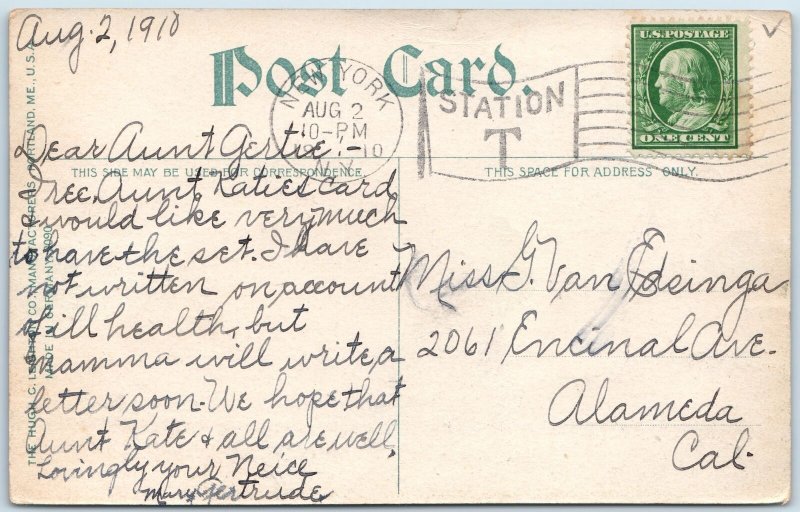 Aug. 2, 1910
Post Card.
NEW YORK
AUG 2
10-PM
1910
N.Y.
STATION
T
U.S. POSTAGE
ONE CENT
THIS SIDE MAY BE USED FOR CORRESPONDENCE.
THIS SPACE FOR ADDRESS ONLY.
Dear Aunt Gertie:-
I rec. Aunt Katies card
& would like very much
to have the set. I have
not written on account
of ill health, but
Mamma will write a
letter soon. We hope that
Aunt Kate & all are well,
Lovingly your Neice
Mary Gertrude
Miss G. Van Edsinga
2061 Encinal Ave.
Alameda
Cal.
THE HUGH C. LEIGHTON CO., MANUFACTURERS, PORTLAND, ME., U.S.A.
MADE IN GERMANY.